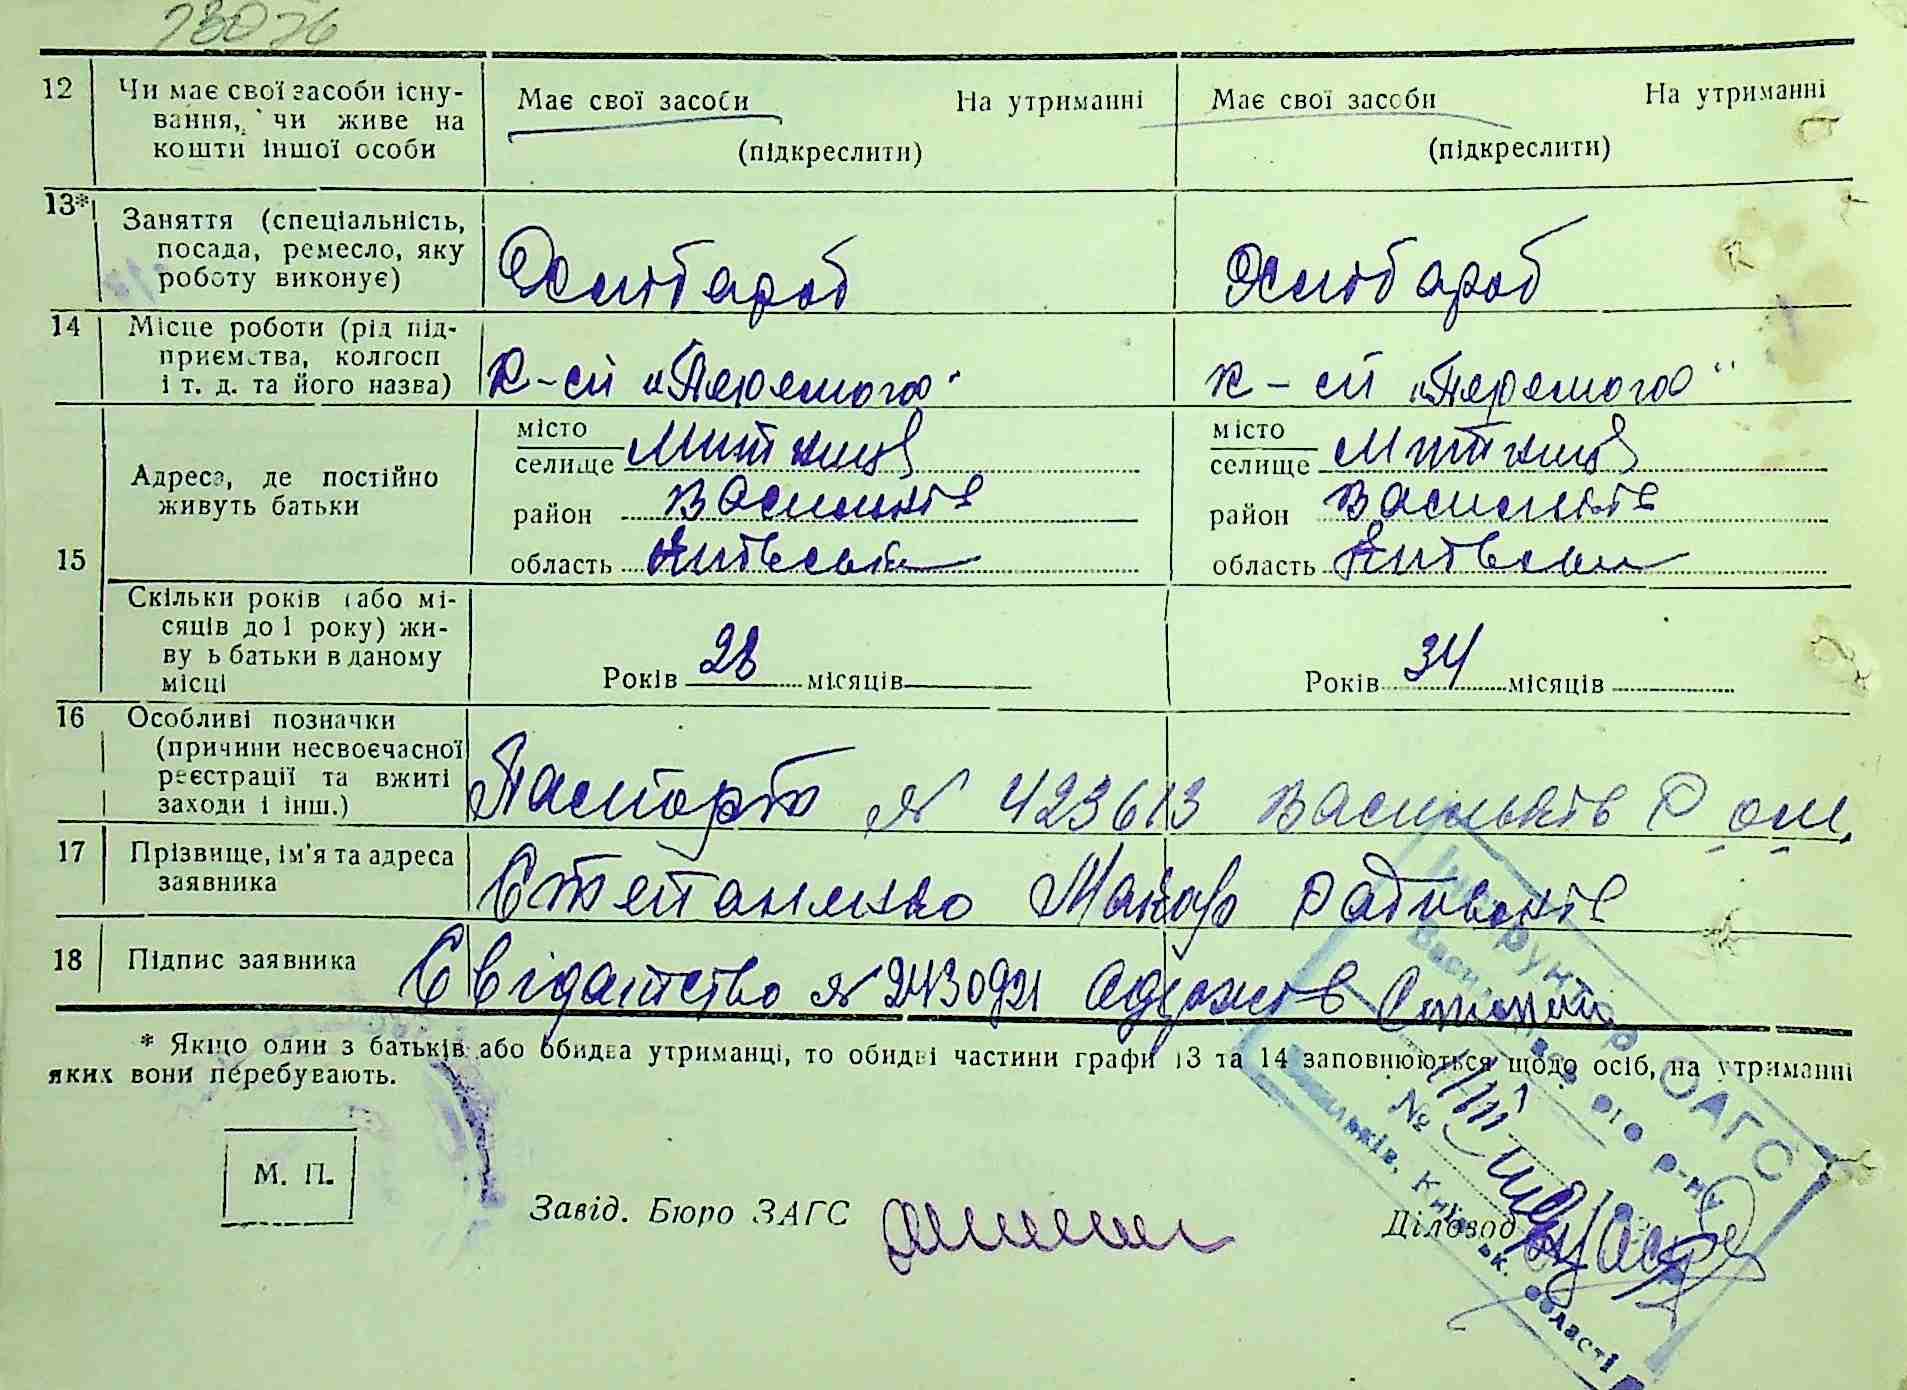 23076
12 Чи має свої засоби існу-
вання, чи живе на
кошти іншої особи
Має свої засоби На утриманні
(підкреслити)
Має свої засоби На утриманні
(підкреслити)
13* Заняття (спеціальність,
посада, ремесло, яку
роботу виконує)
Хлібороб
Хлібороб
14 Місце роботи (рід під-
приємства, колгосп
і т. д. та його назва)
к-сп „Перемога"
к-сп „Перемога"
15 Адреса, де постійно
живуть батьки
місто
селище Митниця
район Васильків
область Київська
місто
селище Митниця
район Васильків
область Київська
Скільки років (або мі-
сяців до 1 року) жи-
ву ь батьки в даному
місці
Років 28 місяців
Років 34 місяців
16 Особливі позначки
(причини несвоєчасної
реєстрації та вжиті
заходи і інш.)
Паспорт № 423613 Васильків
17 Прізвище, ім'я та адреса
заявника
Степаненко Макар
18 Підпис заявника
Свідатство № одержав
* Якщо один з батьків або обидва утриманці, то обидві частини графи 13 та 14 заповнюються щодо осіб, на утриманні
яких вони перебувають.
М. П.
Завід. Бюро ЗАГС
Діловод
Інструктор ЗАГС
Васильківського р-ну
Васильків, Київськ. області
№